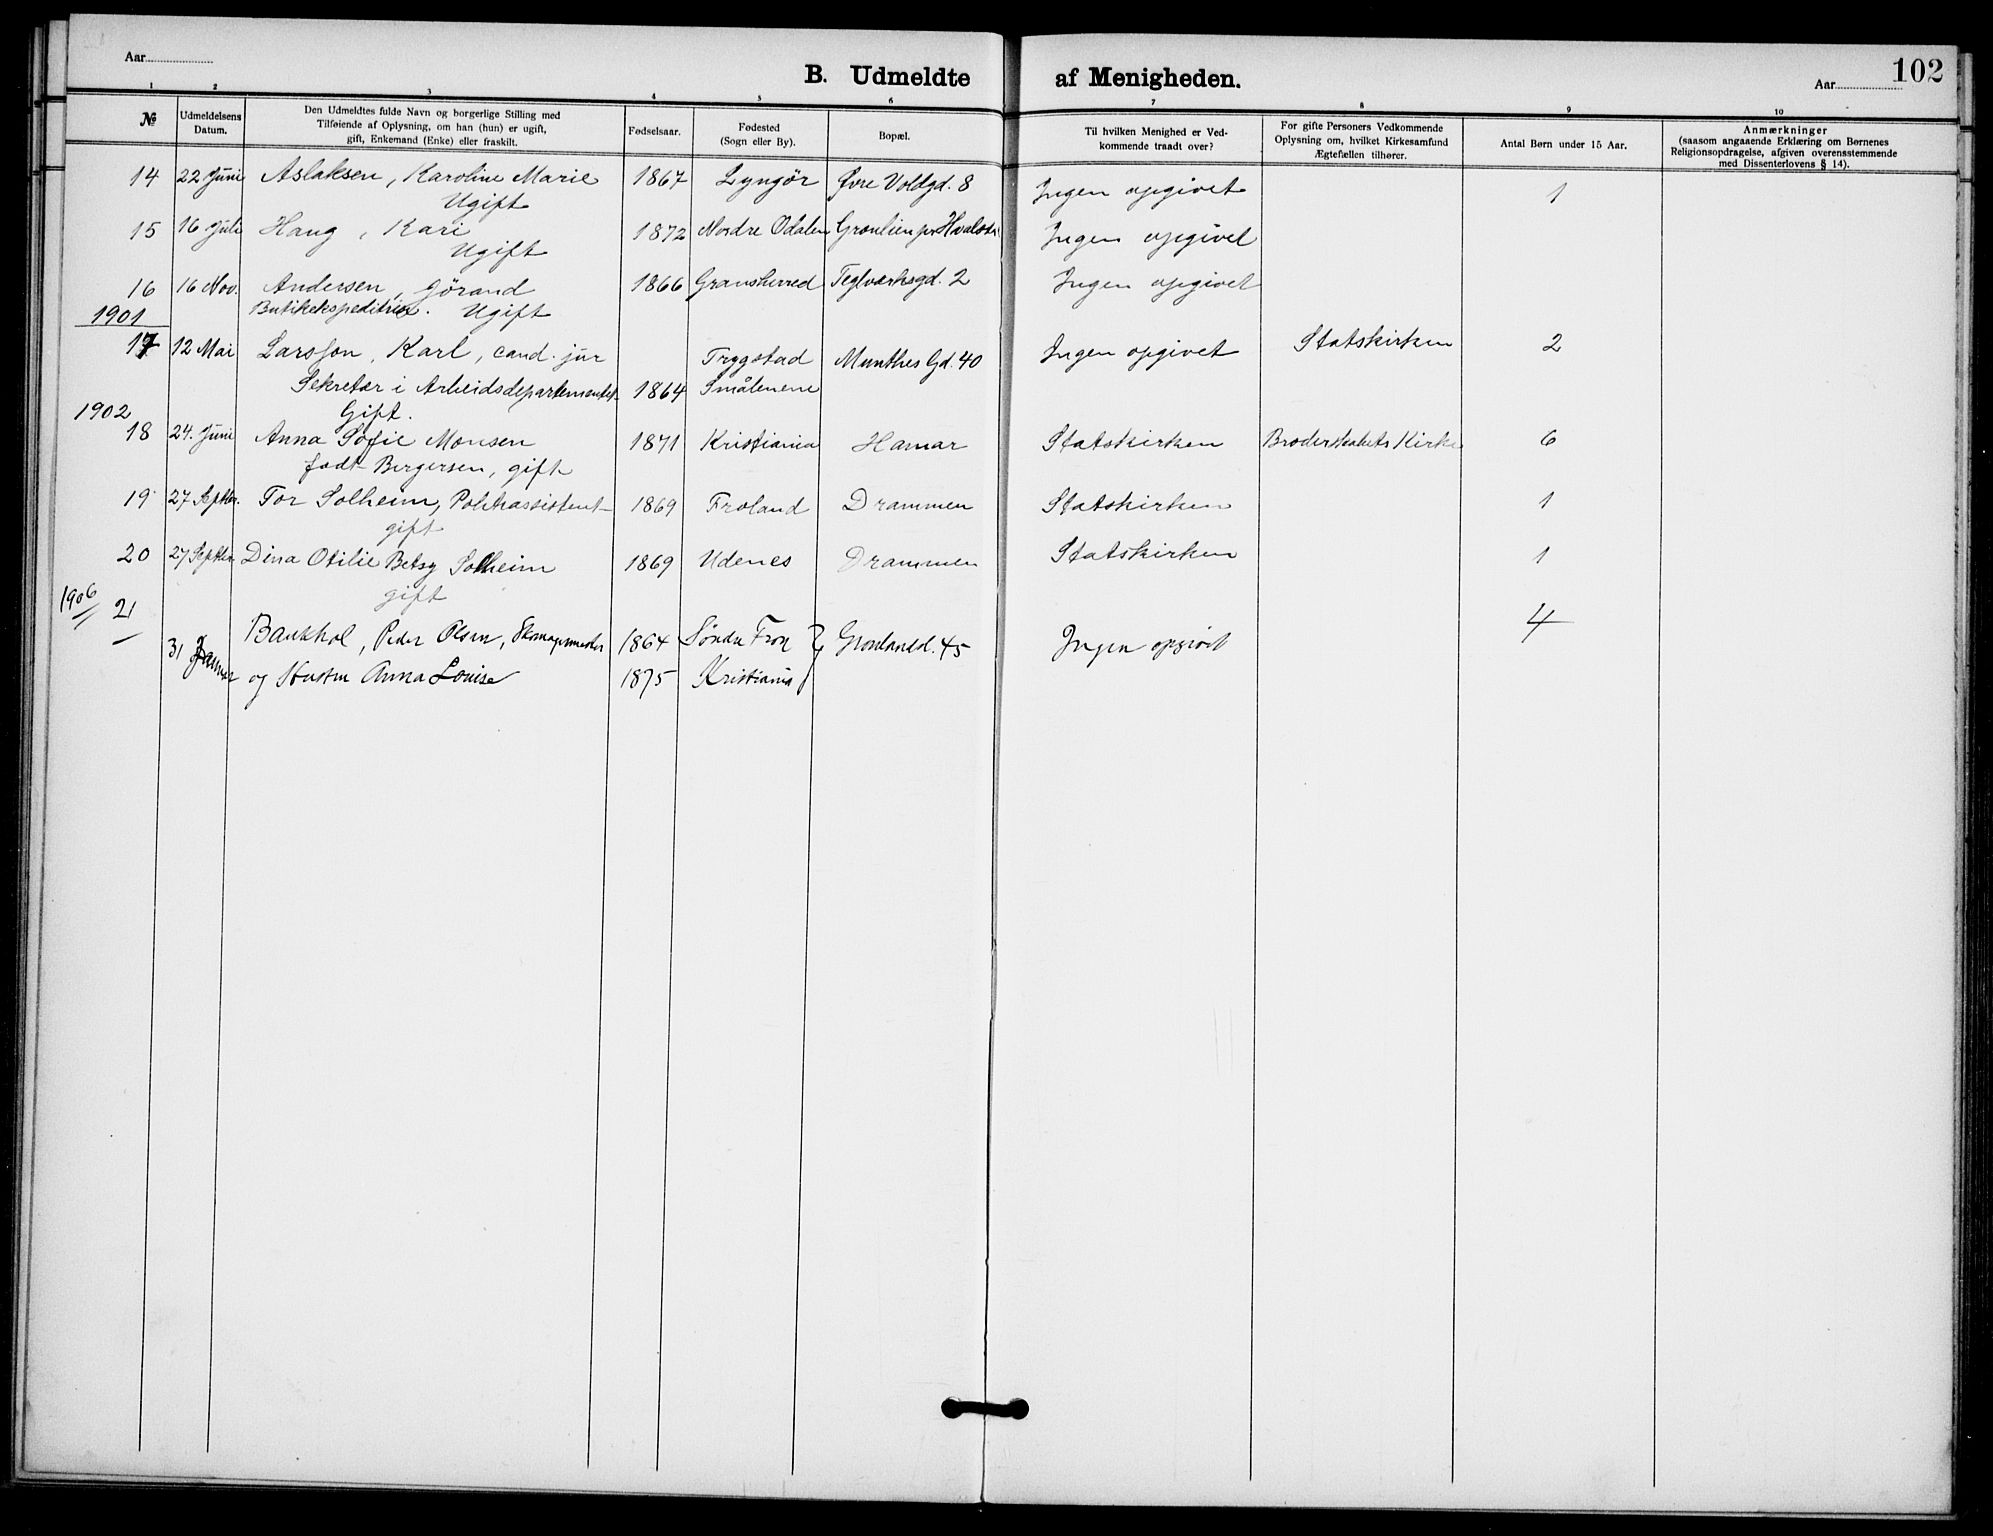 102
Aar
B. Udmeldte af Menigheden.
Aar
1 2 3 4 5 6 7 8 9 10
№
Udmeldelsens
Datum.
Den Udmeldtes fulde Navn og borgerlige Stilling med
Tilføiende af Oplysning, om han (hun) er ugift,
gift, Enkemand (Enke) eller fraskilt.
Fødselsaar.
Fødested
(Sogn eller By).
Bopæl.
Til hvilken Menighed er Ved-
kommende traadt over?
For gifte Personers Vedkommende
Oplysning om, hvilket Kirkesamfund
Ægtefællen tilhører.
Antal Børn under 15 Aar.
Anmærkninger
(saasom angaaende Erklæring om Børnenes
Religionsopdragelse, afgiven overensstemmende
med Dissenterlovens § 14).
14 22 Juni Aslaksen, Karoline Marie 1867 Lyngör Øvre Voldgd. 8 Ingen opgivet 1
Ugift
15 16 Juli Haug, Kari 1872 Nordre Odalen Grønlien pr Hvalstad Ingen opgivet
Ugift
16 16 Nov. Andersen, Jörand 1866 Gransherred Teglværksgd. 2 Ingen opgivet
Butikekspeditrice. Ugift
1901
17 12 Mai Larsson, Karl, cand. jur Trygstad Munthes Gd. 40 Ingen opgivet Statskirken 2
Sekretær i Arbeidsdepartementet 1864 Smålenene
Gift.
1902
18 24. Juni Anna Sofie Monsen 1871 Kristiania Hamar Statskirken Broderskabets Kirke 6
født Bergersen, gift
19 27 Septbr. Tor Solheim, Politiassistent 1869 Froland Drammen Statskirken 1
gift
20 27 Septbr Dina Otilie Betsy Solheim 1869 Udenes Drammen Statskirken 1
gift
1906
21 31 Januar Baukhol, Peder Olsen, Skomagermester 1864 Søndre Fron Grønlandsl. 45 Ingen opgivet 4
og Hustru Anna Louise 1875 Kristiania